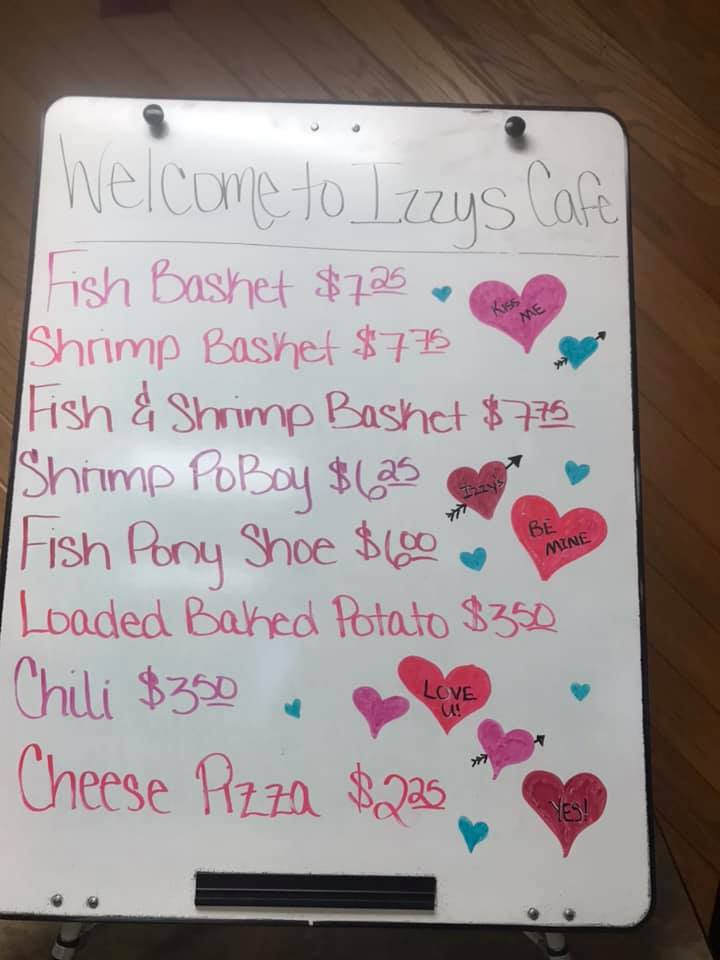 Welcome to Izzys Cafe
Fish Basket $7.25
KISS ME
Shrimp Basket $7.75
Fish & Shrimp Basket $7.75
Shrimp PoBoy $6.25
Izzy's
Fish Pony Shoe $6.00
BE MINE
Loaded Baked Potato $3.50
Chili $3.50
LOVE U!
Cheese Pizza $2.25
YES!